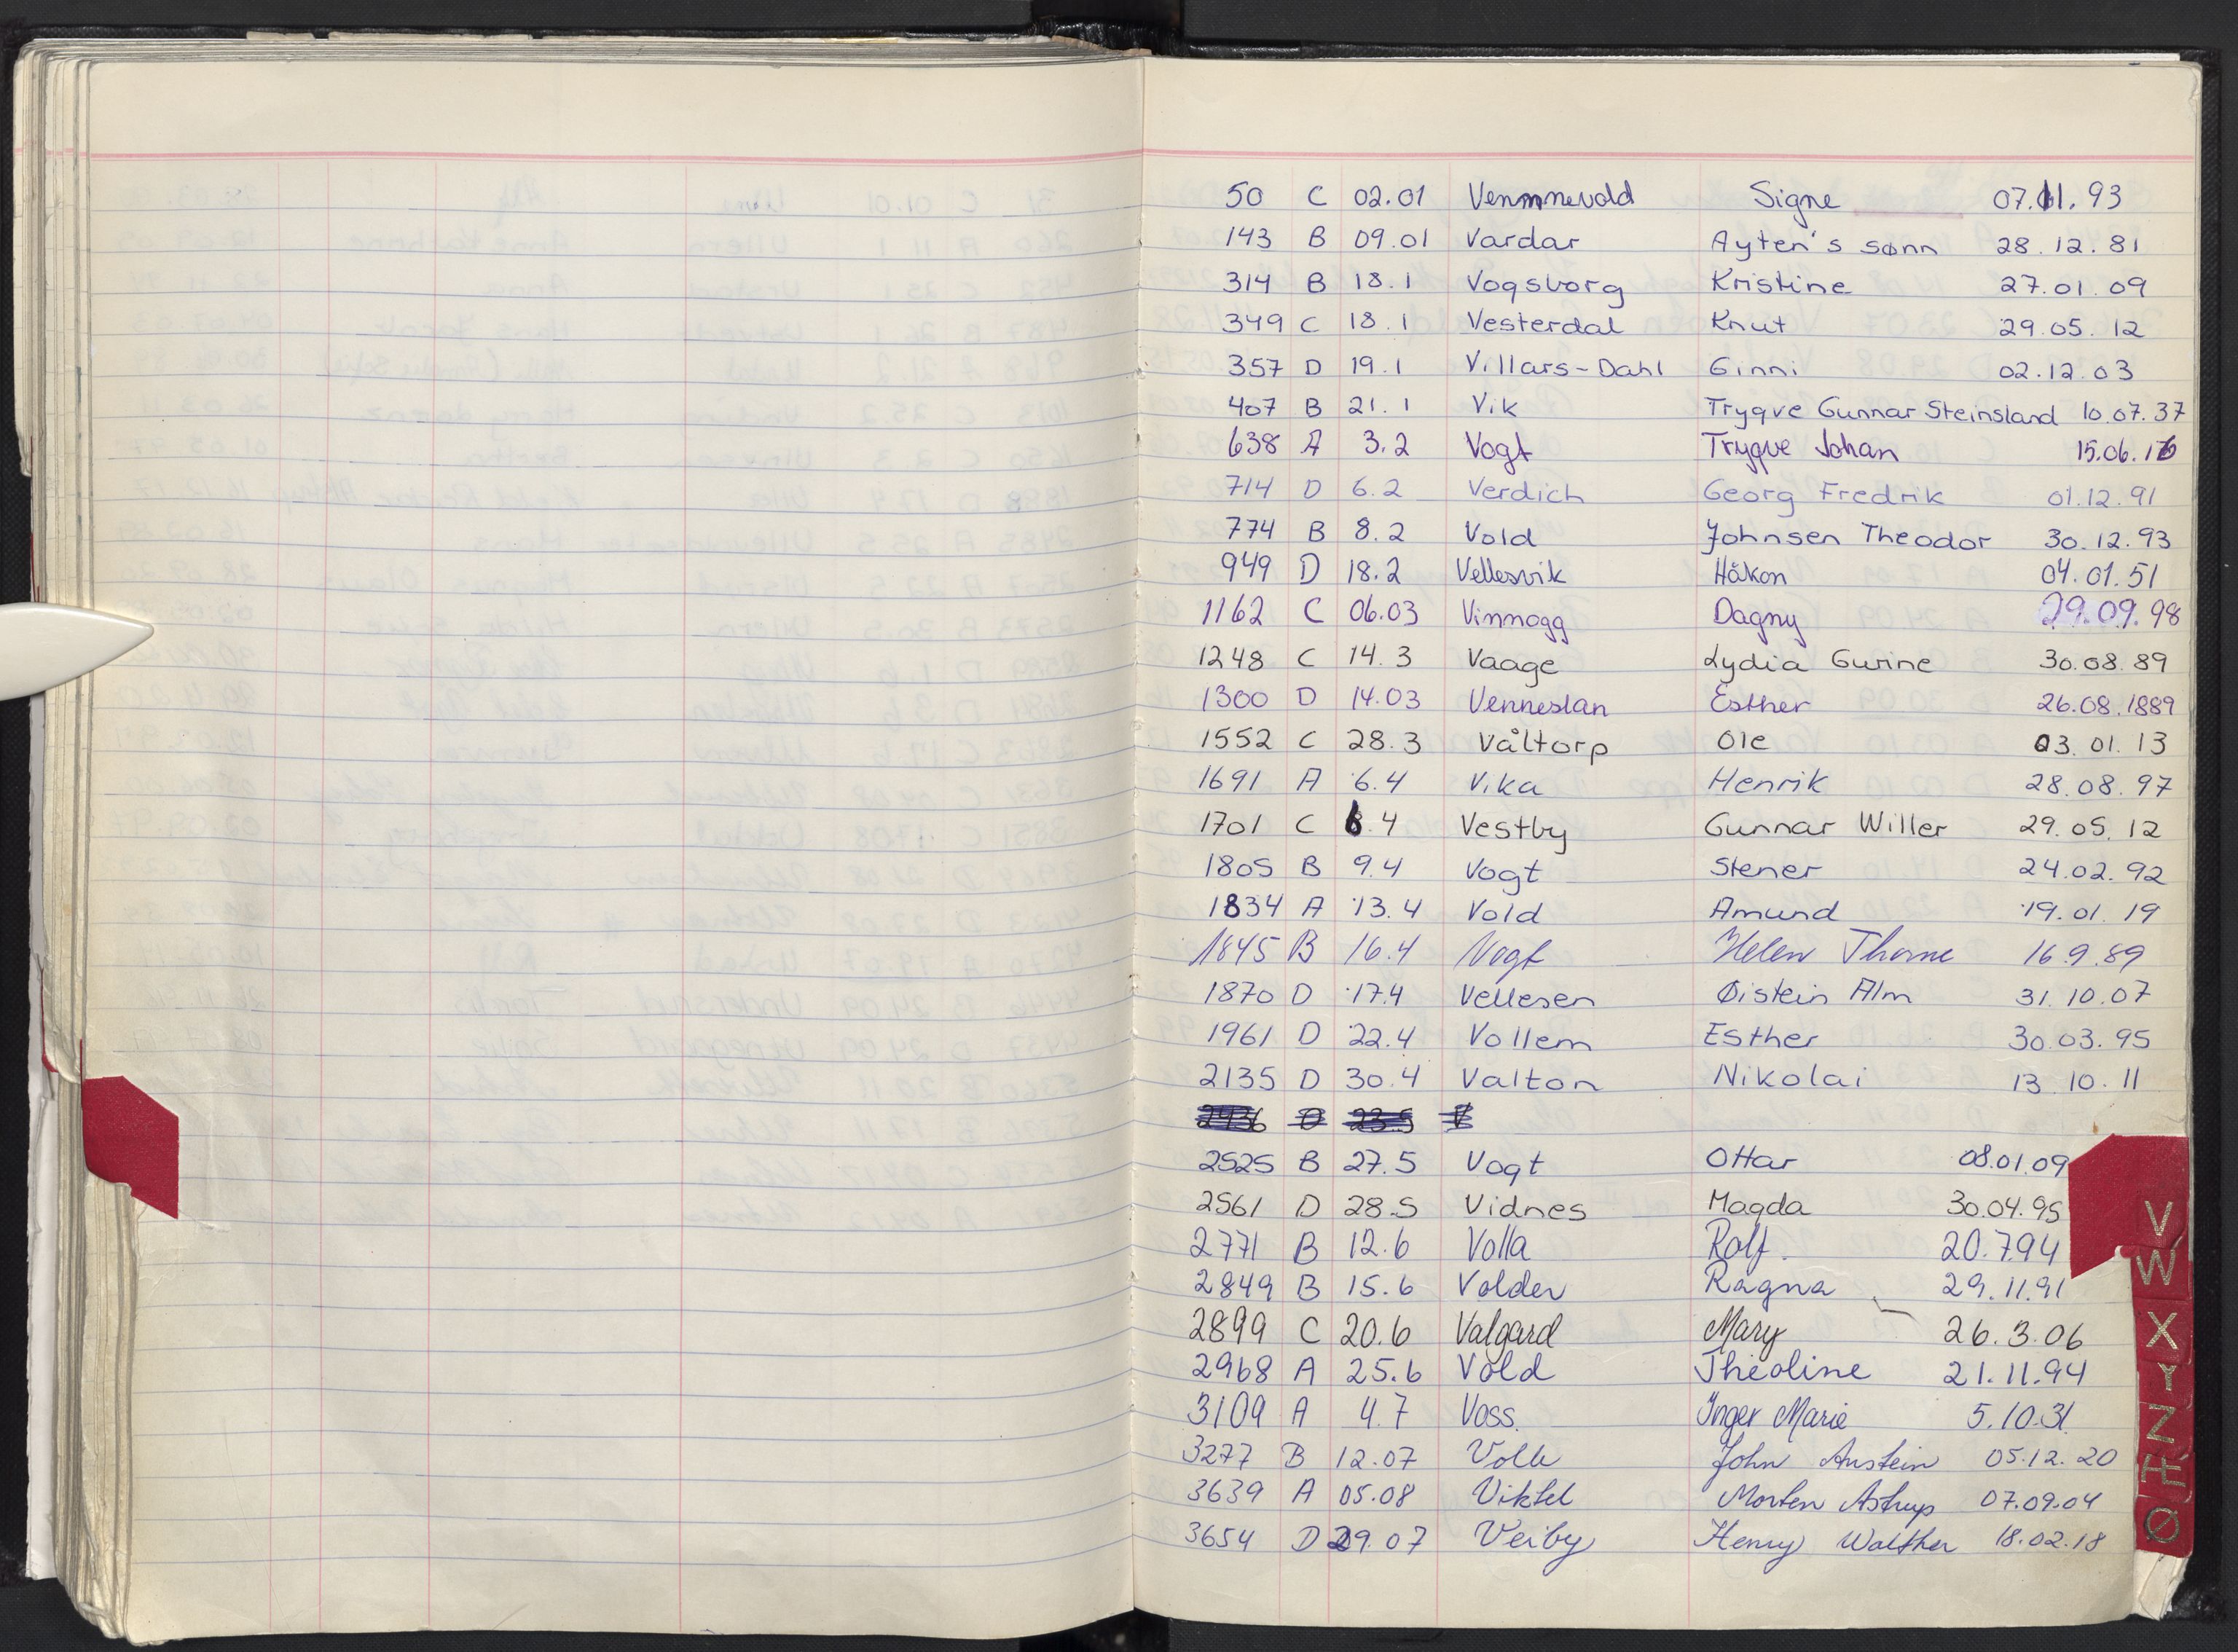 50 C 02.01 Vennnevold Signe 07.11.93
143 B 09.01 Vardar Ayten's sønn 28.12.81
314 B 18.1 Vogsborg Kristine 27.01.09
349 C 18.1 Vesterdal Knut 29.05.12
357 D 19.1 Villars-Dahl Ginni 02.12.03
407 B 21.1 Vik Trygve Gunnar Steinsland 10.07.37
638 A 3.2 Vogt Trygve Johan 15.06.16
714 D 6.2 Verdich Georg Fredrik 01.12.91
774 B 8.2 Vold Johnsen Theodor 30.12.93
949 D 18.2 Vellesvik Håkon 04.01.51
1162 C 06.03 Vinnogg Dagny 29.09.98
1248 C 14.3 Vaage Lydia Gurine 30.08.89
1300 D 14.03 Venneslan Esther 26.08.1889
1552 C 28.3 Våltorp Ole 03.01.13
1691 A 6.4 Vika Henrik 28.08.97
1701 C 6.4 Vestby Gunnar Willer 29.05.12
1805 B 9.4 Vogt Stener 24.02.92
1834 A 13.4 Vold Amund 19.01.19
1845 B 16.4 Vogt Helen Thorne 16.9.89
1870 D 17.4 Vellesen Øistein Alm 31.10.07
1961 D 22.4 Vollem Esther 30.03.95
2135 D 30.4 Valton Nikolai 13.10.11
2525 B 27.5 Vogt Ottar 08.01.09
2561 D 28.5 Vidnes Magda 30.04.95
2771 B 12.6 Volla Rolf 20.7.94
2849 B 15.6 Volden Ragna 29.11.91
2899 C 20.6 Valgard Mary 26.3.06
2968 A 25.6 Vold Theoline 21.11.94
3109 A 4.7 Voss Inger Marie 5.10.31
3277 B 12.07 John Anstein 05.12.20
3639 A 05.08 Morten Astrup 07.09.04
3654 D 29.07 Veiby Henry Walther 18.02.18
V
W
X
Y
Z
Æ
Ø